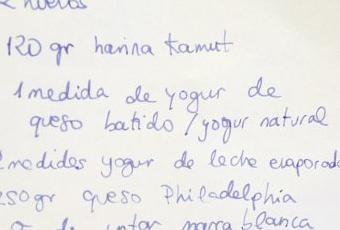 2 huevos
120 gr harina Kamut
1 medida de yogur de
queso batido / yogur natural
2 medides yogur de leche evaporada
250 gr queso Philadelphia
marca blanca